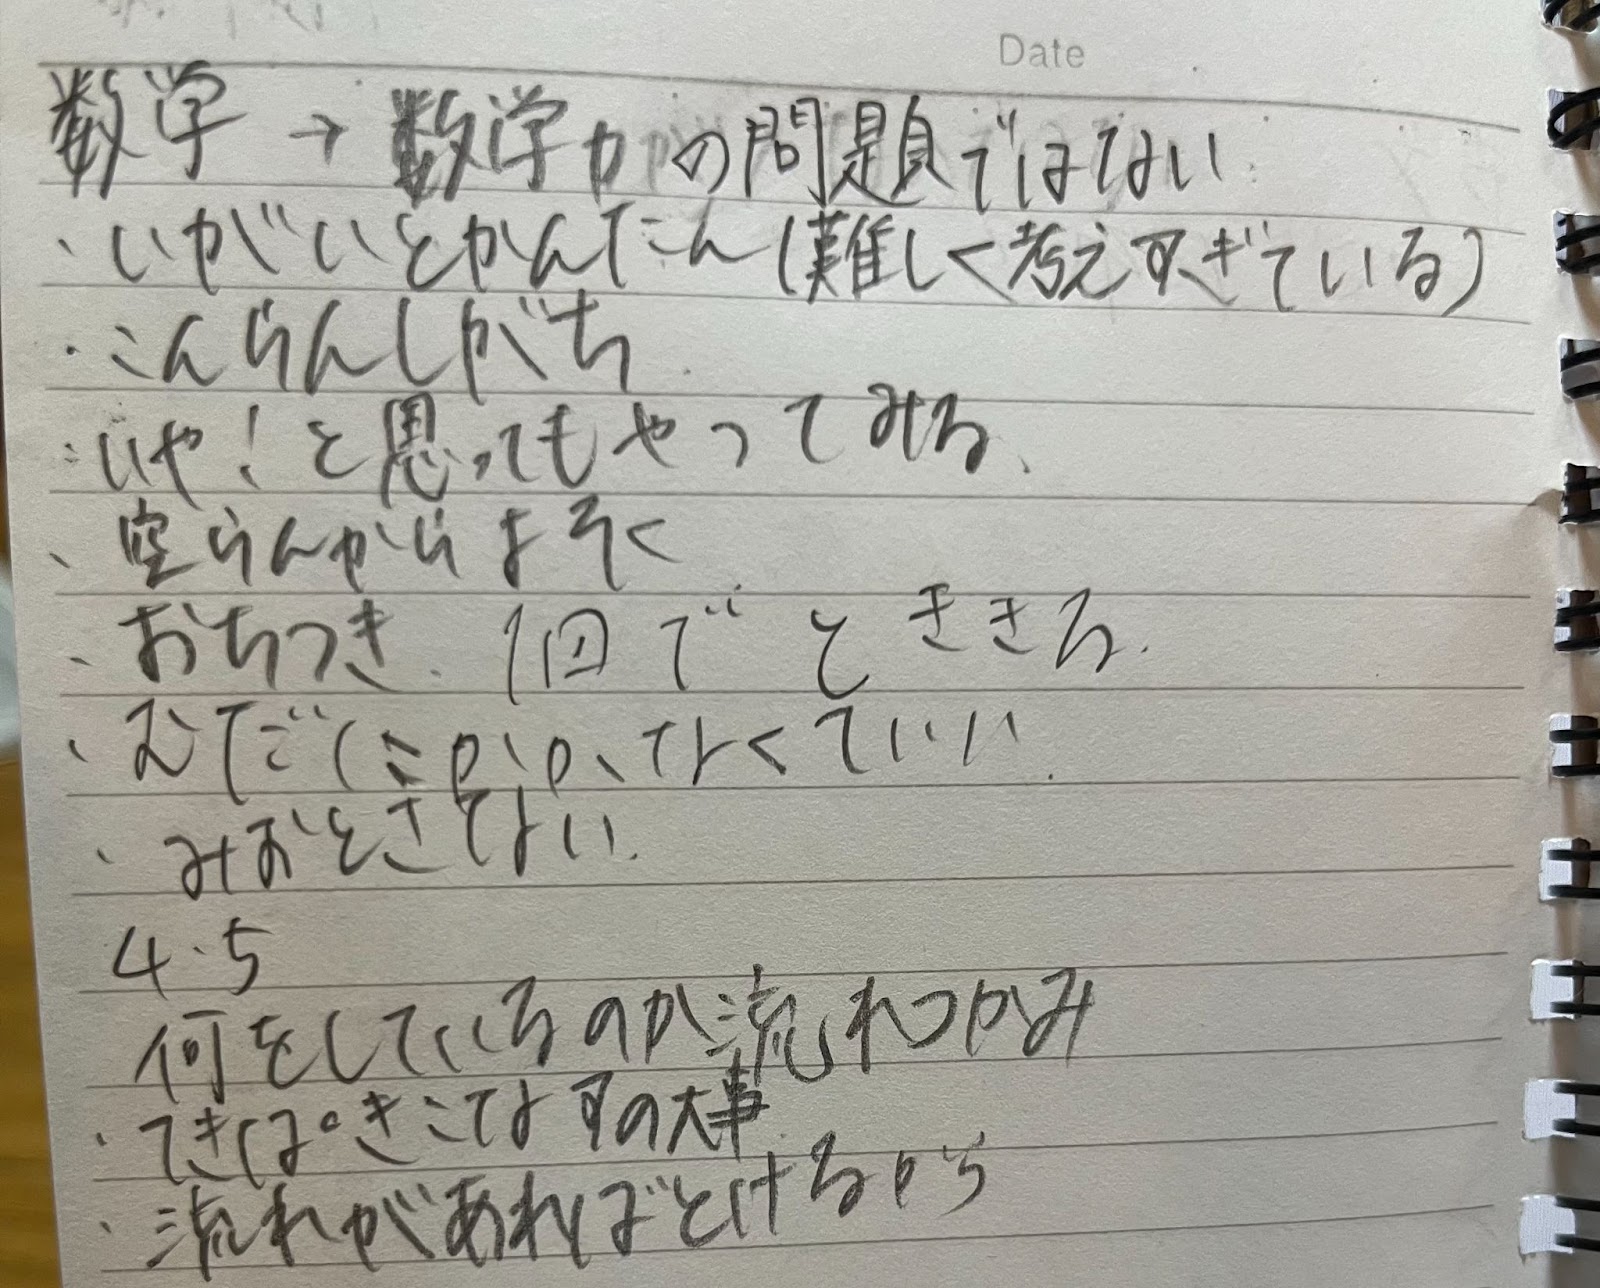 Date
数学→数学力の問題ではない
・いがいとかんたん(難しく考えすぎている)
・こんらんしがち
・いや!と思ってもやってみる、
・空らんからよそく
・おちつき、1回でときききる.
・むだに なくていい.
・みおとさない.
4.5
何をしているのか流れつかみ
・てきぱきこなすの大事
・流れがあればとけるから